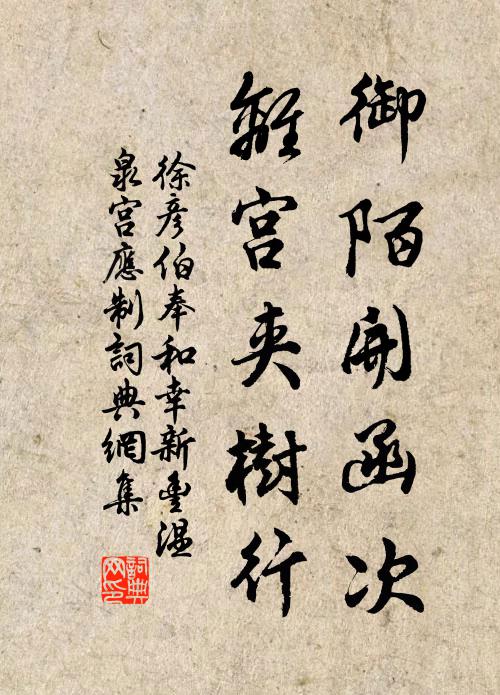 御陌開函次
離宮夾樹行
徐彥伯奉和幸新豐温
泉宮應制詞典網集
詞典
网印